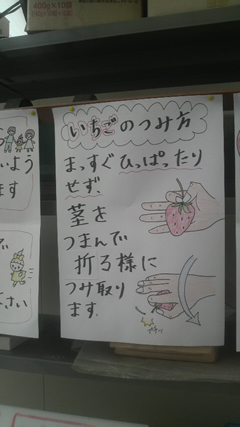 400g×10個
いちごのつみ方
まっすぐひっぱったり
せず、
茎を
つまんで
折る様に
つみ取り
ます。
いよう
ます
で
さい